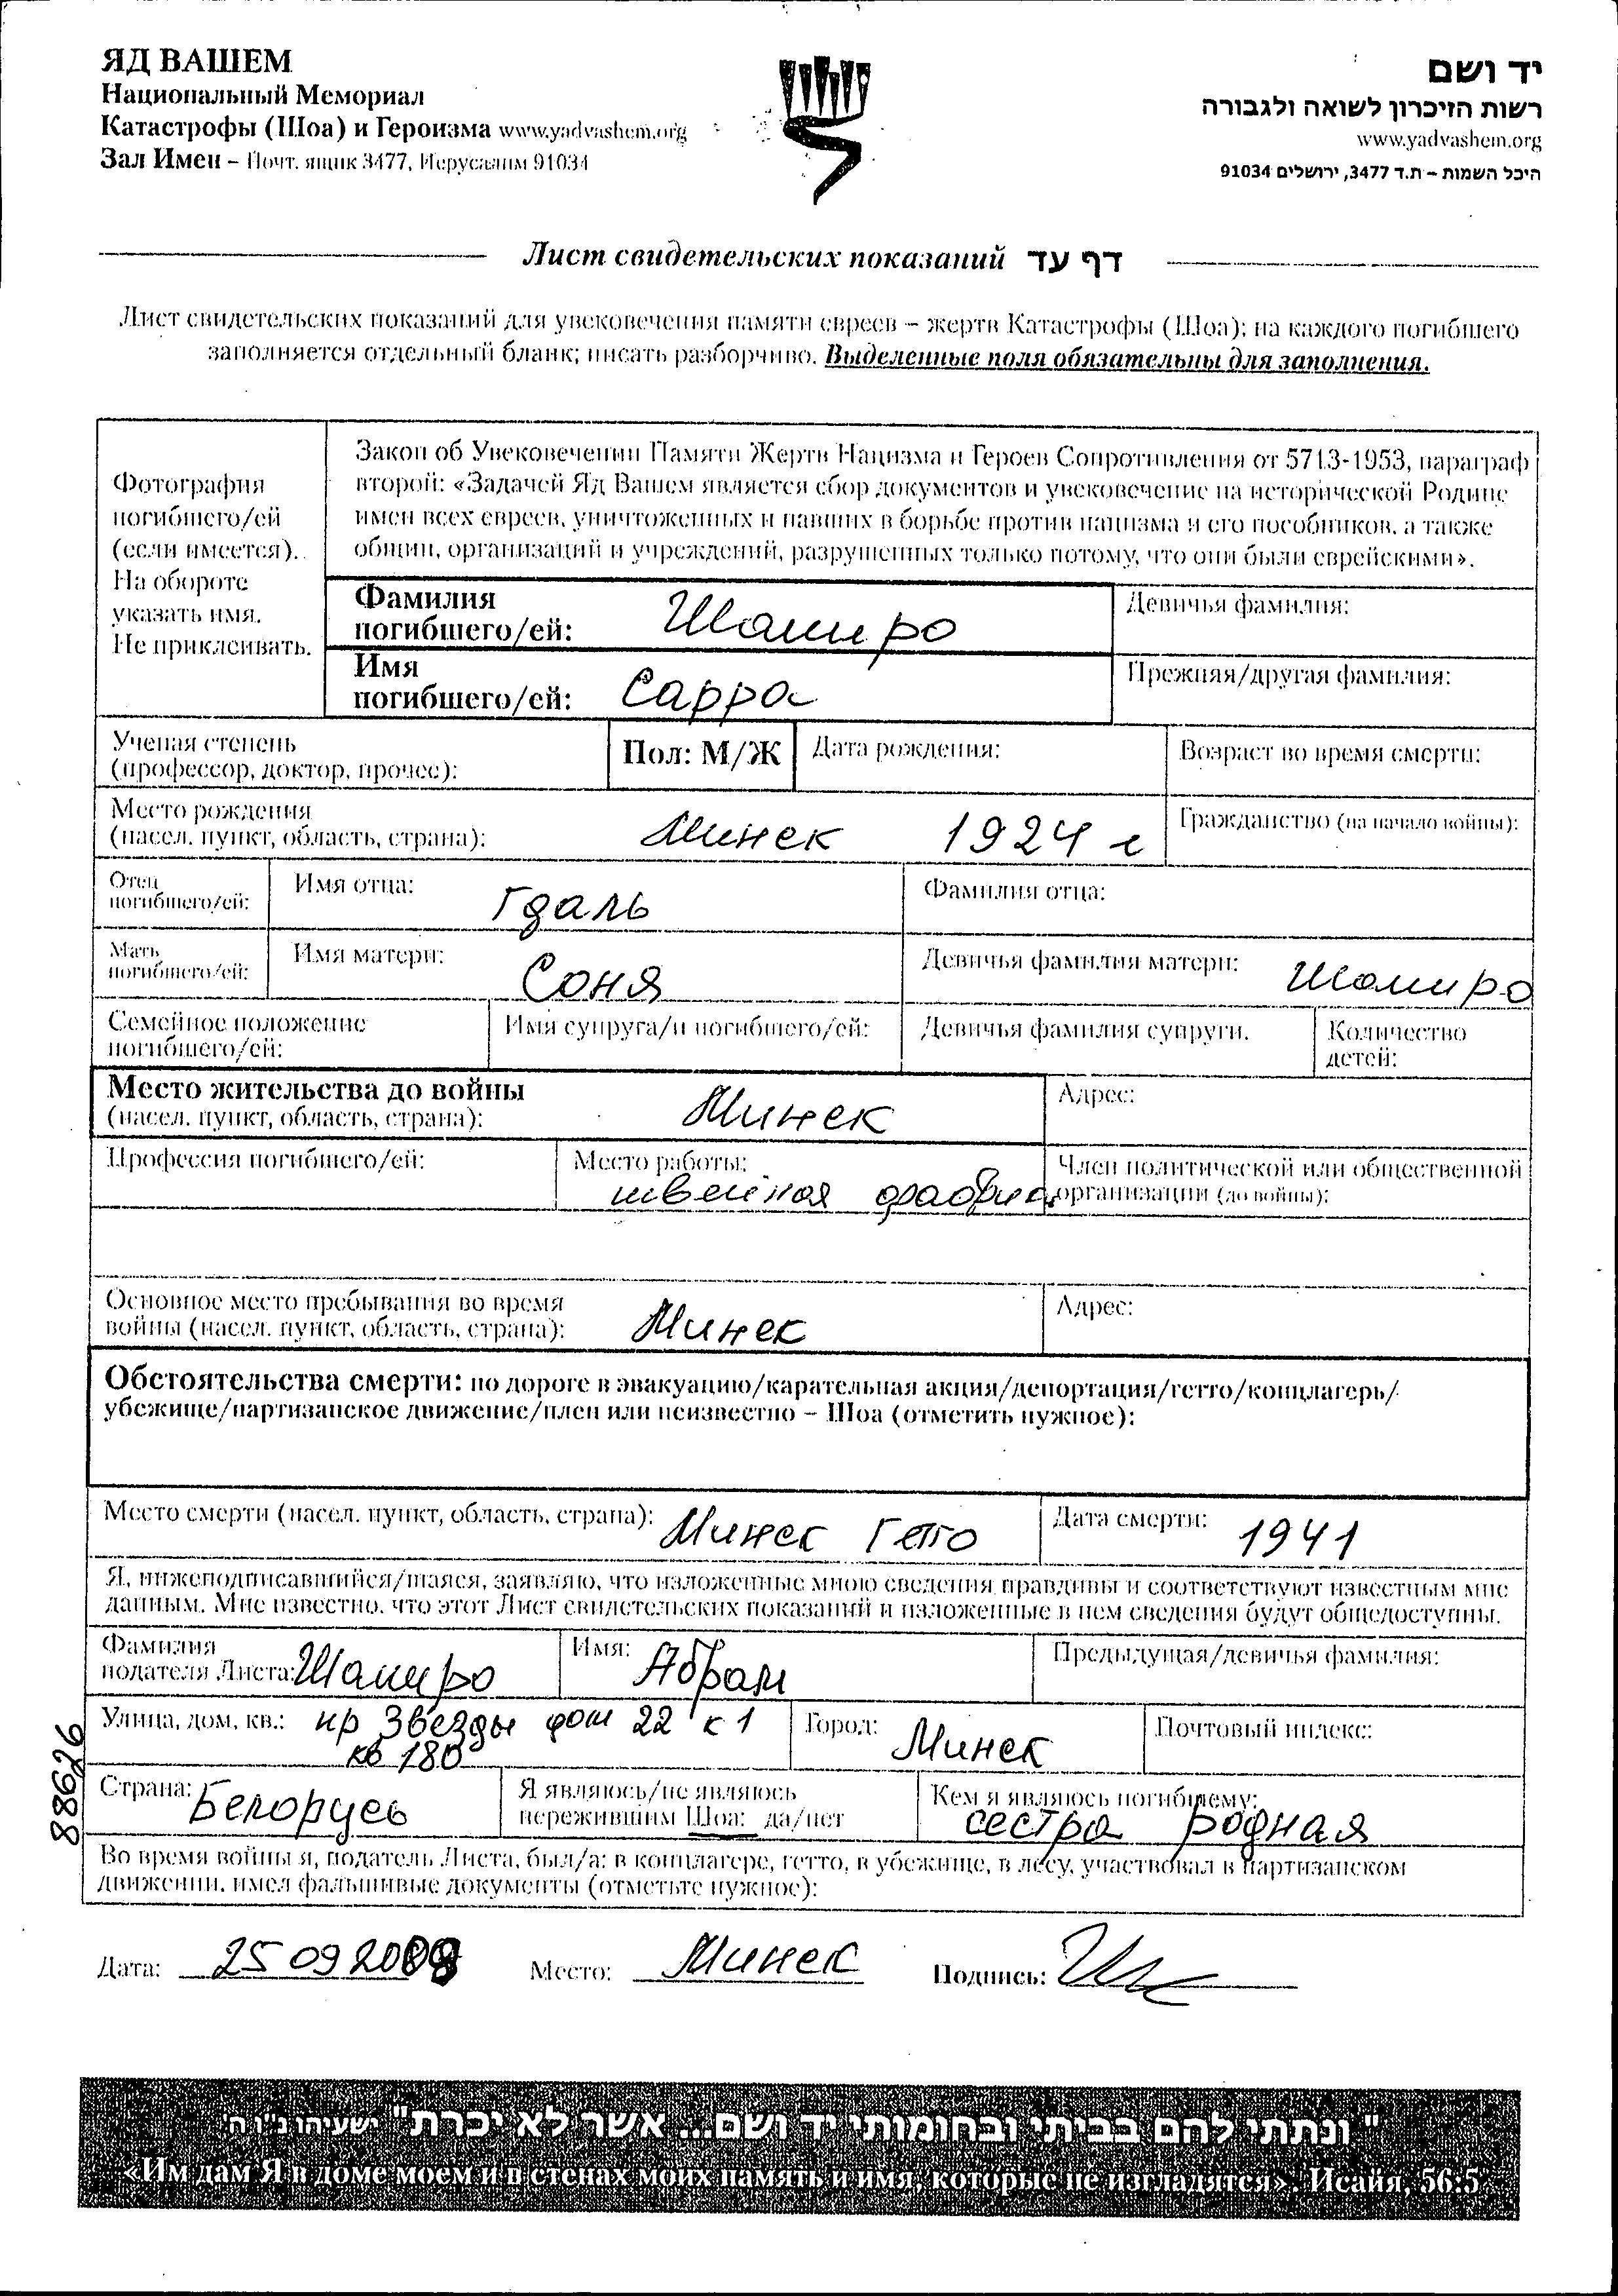 ЯД ВАШЕМ
Национальный Мемориал
Катастрофы (Шоа) и Героизма www.yadvashem.org
Зал Имен – Почт. ящик 3477, Иерусалим 91034
יד ושם
רשות הזיכרון לשואה ולגבורה
www.yadvashem.org
היכל השמות – ת.ד 3477, ירושלים 91034
Лист свидетельских показаний דף עד
Лист свидетельских показаний для увековечения памяти евреев – жертв Катастрофы (Шоа); на каждого погибшего
заполняется отдельный бланк; писать разборчиво. Выделенные поля обязательны для заполнения.
Фотография
погибшего/ей
(если имеется).
На обороте
указать имя.
Не приклеивать.
Закон об Увековечении Памяти Жертв Нацизма и Героев Сопротивления от 5713-1953, параграф
второй: «Задачей Яд Вашем является сбор документов и увековечение на исторической Родине
имен всех евреев, уничтоженных и павших в борьбе против нацизма и его пособников, а также
общин, организаций и учреждений, разрушенных только потому, что они были еврейскими».
Фамилия
погибшего/ей: Шапиро
Девичья фамилия:
Имя
погибшего/ей: Сарра
Прежняя/другая фамилия:
Ученая степень
(профессор, доктор, прочее):
Пол: М/Ж
Дата рождения:
Возраст во время смерти:
Место рождения
(насел. пункт, область, страна): Минск 1924 г
Гражданство (на начало войны):
Отец
погибшего/ей:
Имя отца: Гдаль
Фамилия отца:
Мать
погибшего/ей:
Имя матери: Соня
Девичья фамилия матери: Шапиро
Семейное положение
погибшего/ей:
Имя супруга/и погибшего/ей:
Девичья фамилия супруги.
Количество
детей:
Место жительства до войны
(насел. пункт, область, страна): Минск
Адрес:
Профессия погибшего/ей:
Место работы:
швейная фабрика
Член политической или общественной
организации (до войны):
Основное место пребывания во время
войны (насел. пункт, область, страна): Минск
Адрес:
Обстоятельства смерти: по дороге в эвакуацию/карательная акция/депортация/гетто/концлагерь/
убежище/партизанское движение/плен или неизвестно – Шоа (отметить нужное):
Место смерти (насел. пункт, область, страна): Минск Гетто
Дата смерти: 1941
Я, нижеподписавшийся/шаяся, заявляю, что изложенные мною сведения правдивы и соответствуют известным мне
данным. Мне известно, что этот Лист свидетельских показаний и изложенные в нем сведения будут общедоступны.
Фамилия
подателя Листа: Шапиро
Имя: Абрам
Предыдущая/девичья фамилия:
Улица, дом, кв.: пр Звезды дом 22 к 1
кв 180
Город: Минск
Почтовый индекс:
88626
Страна: Белорусь
Я являюсь/не являюсь
пережившим Шоа: да/нет
Кем я являюсь погибшему:
сестра родная
Во время войны я, податель Листа, был/а: в концлагере, гетто, в убежище, в лесу, участвовал в партизанском
движении, имел фальшивые документы (отметьте нужное):
Дата: 25 09 2008 Место: Минск Подпись:
"ונתתי להם בביתי ובחומותי יד ושם... אשר לא יכרת" ישעיהו נ"ו ה'
«Им дам Я в доме моем и в стенах моих память и имя, которые не изгладятся». Исайя, 56:5